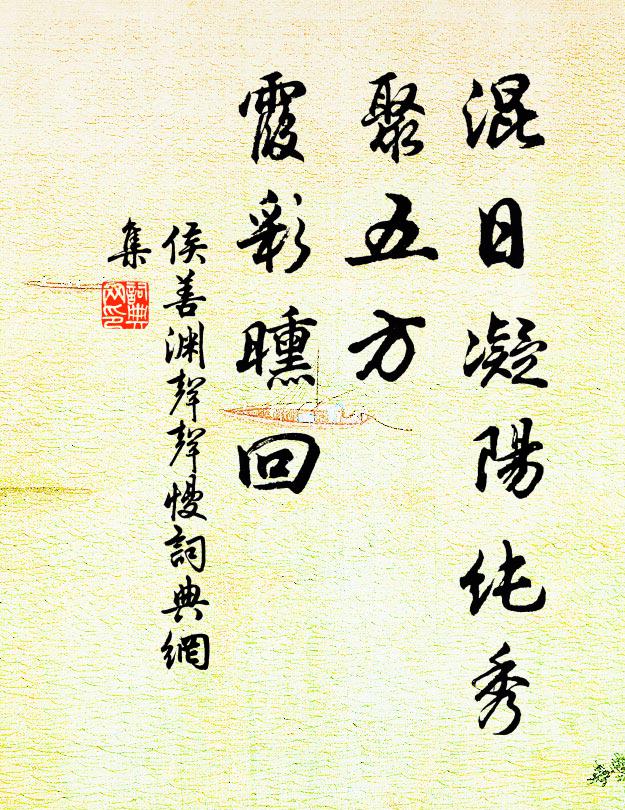 混日凝陽純秀
聚五方
霞彩曛回
侯善淵聲聲慢詞典網
集
詞典
网印